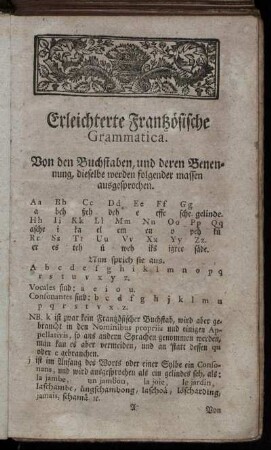 Erleichterte Frantzösische
Grammatica.
Von den Buchstaben, und deren Benen-
nung, dieselbe werden folgender massen
ausgesprochen.
Aa Bb Cc Dd Ee Ff Gg
a beh seh deh e effe sche gelinde.
Hh Ii Kk Ll Mm Nn Oo Pp Qq
asche i ka el em en o peh kü
Rr Sa Tt Uu Vv Xx Yy Zz.
er es teh ü weh iks igrec säde.
Nun sprich sie aus.
A b c d e f g h i k l m n o p q
r s t u r x y z
Vocales sind: a e i o u.
Consonantes sind: b c d f g h j k l m n
p q r s t v x z.
NB. k ist zwar kein Französischer Buchstab, wird aber ge-
braucht in den Nominibus propriis und einigen Ap-
pellativis, so aus andern Sprachen genommen werden,
man kan es aber vermeiden, und an statt dessen qu
oder c gebrauchen.
j ist im Anfang des Worts oder einer Sylbe ein Conso-
nans, und wird ausgesprochen als ein gelindes sch, als:
la jambe, un jambon, la joie, le jardin,
laschambe, üngschambong, laschoä, löschardäng,
jamais, schamä ꝛc.
A Von